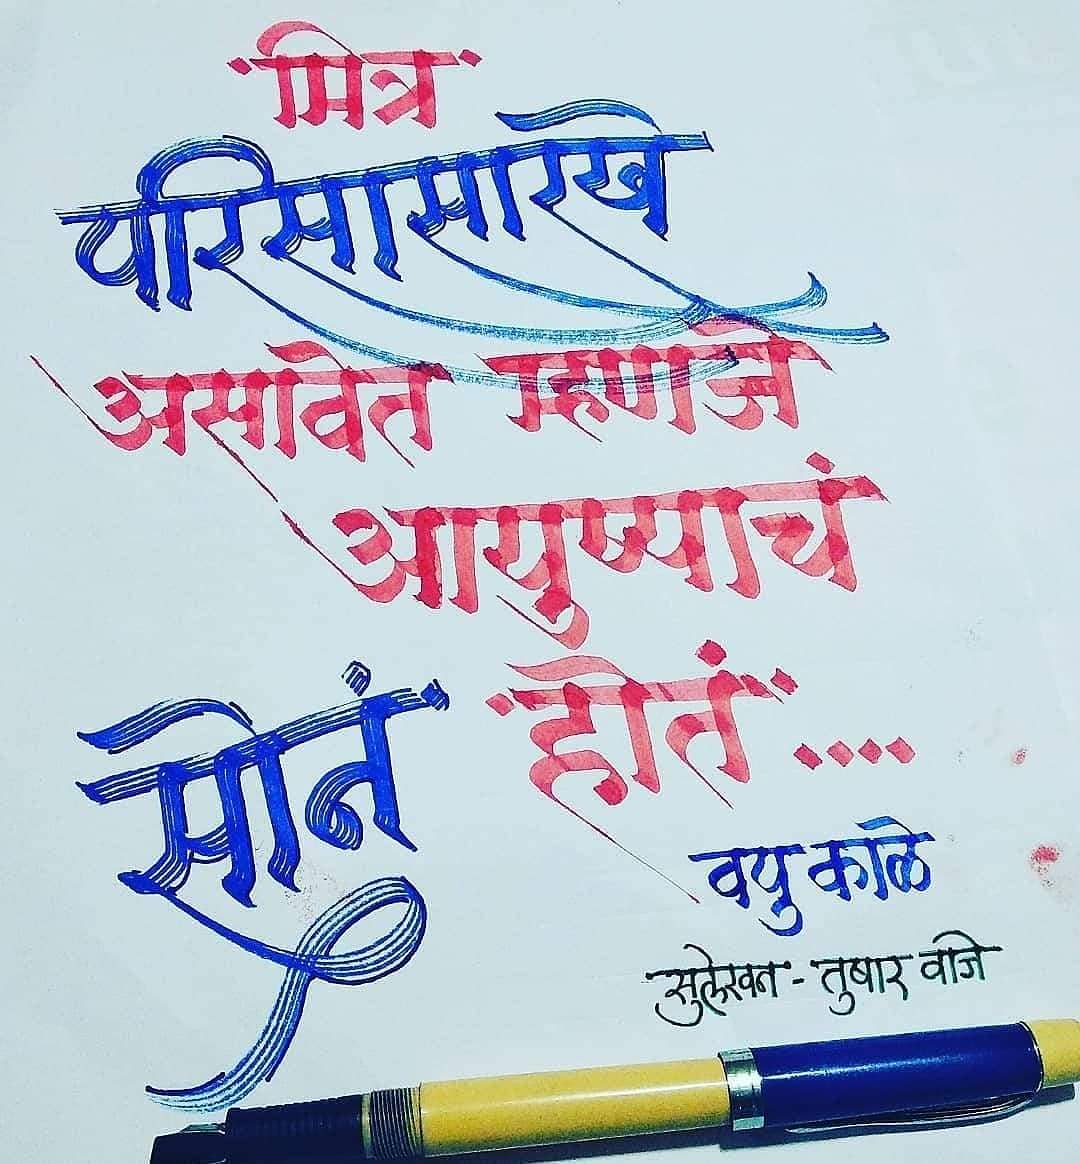 मित्र
परिसासारखे
असावेत म्हणजे
आयुष्याचं
सोनं होतं ....
वपु काळे
सुलेखन - तुषार वाजे